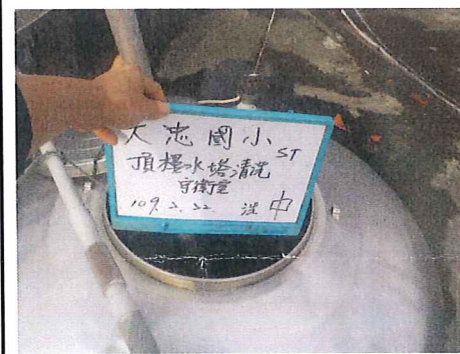 大忠國小
ST
頂樓水塔清洗
守衛室
109.2.22. 洗中